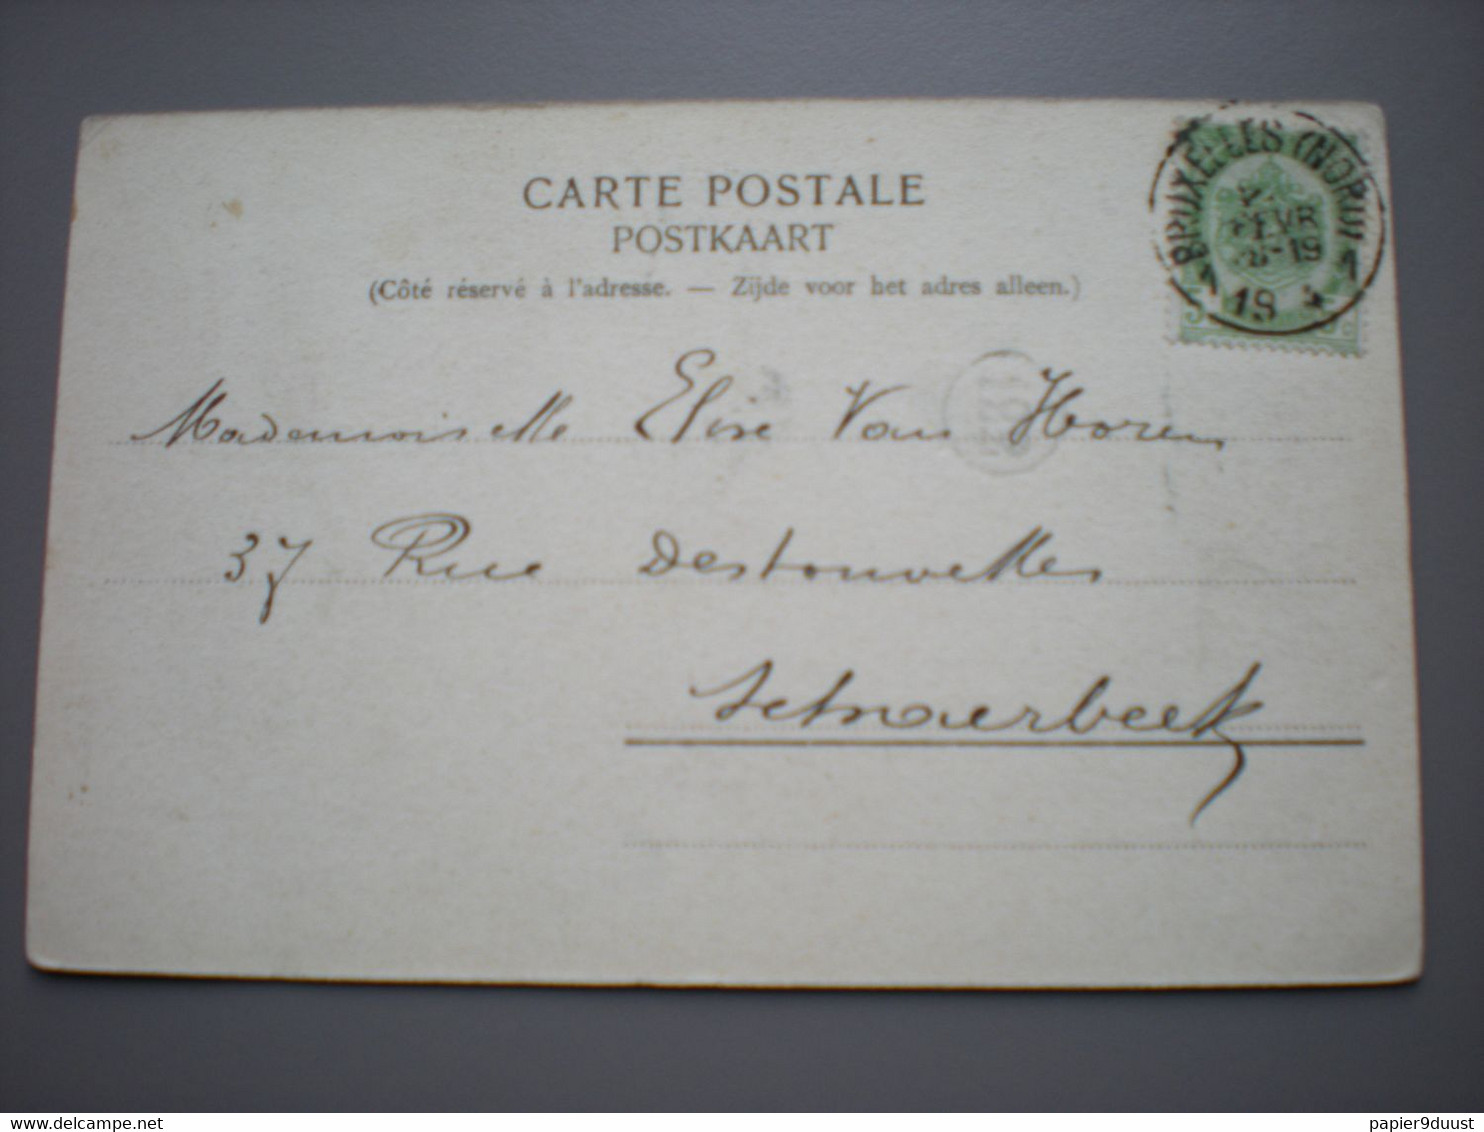 CARTE POSTALE
POSTKAART
(Côté réservé à l'adresse. — Zijde voor het adres alleen.)
BRUXELLES (NORD)
FEVR
-19
1 19 4 1
Mademoiselle Elise Van Horen
37 Rue Destouvelles
Schaerbeek
delcampe.net
papier9duust